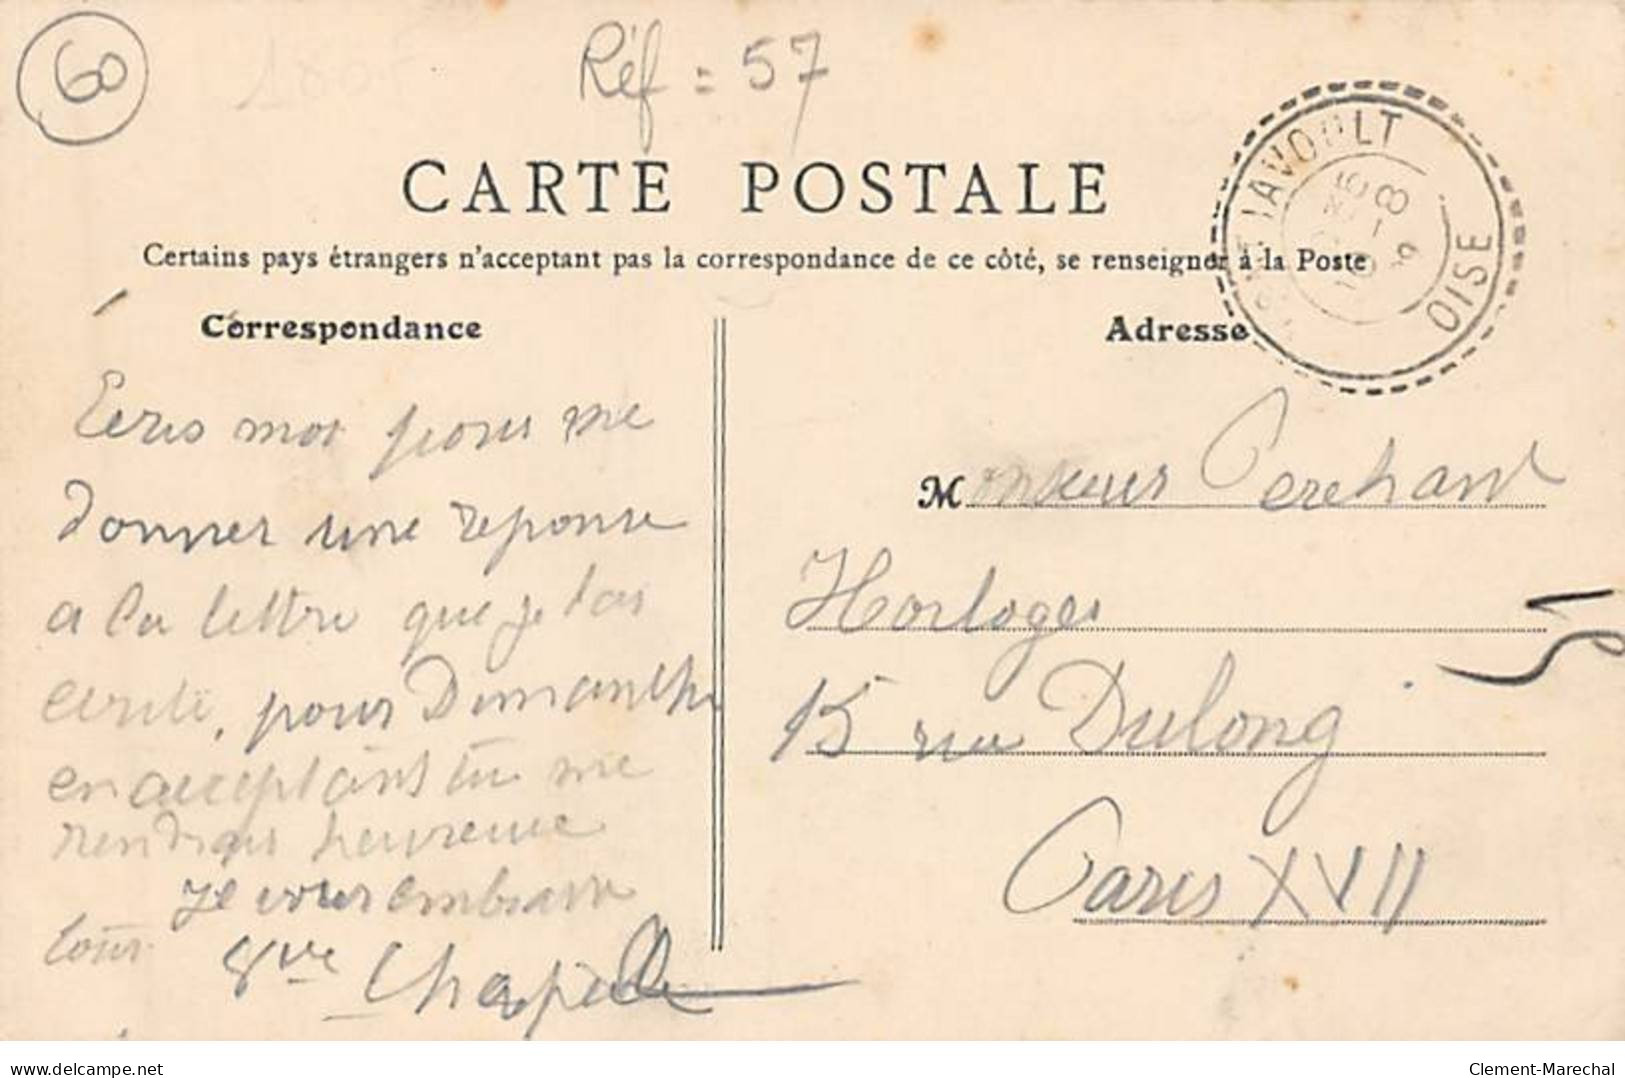 60
Réf = 57
CARTE POSTALE
Certains pays étrangers n'acceptent pas la correspondance de ce côté, se renseigner à la Poste
Correspondance
Adresse
OISE
Ecris moi pour me
donner une reponse
a la lettre que je t'ai
ecrite, pour Dimanche
en acceptant tu me
rendrais heureuse
Je vous embrasse
tous
Vve Chapelle
Monsieur Perchant
Horloger
15 rue Dulong
Paris XVII
delcampe.net
Clement-Marechal